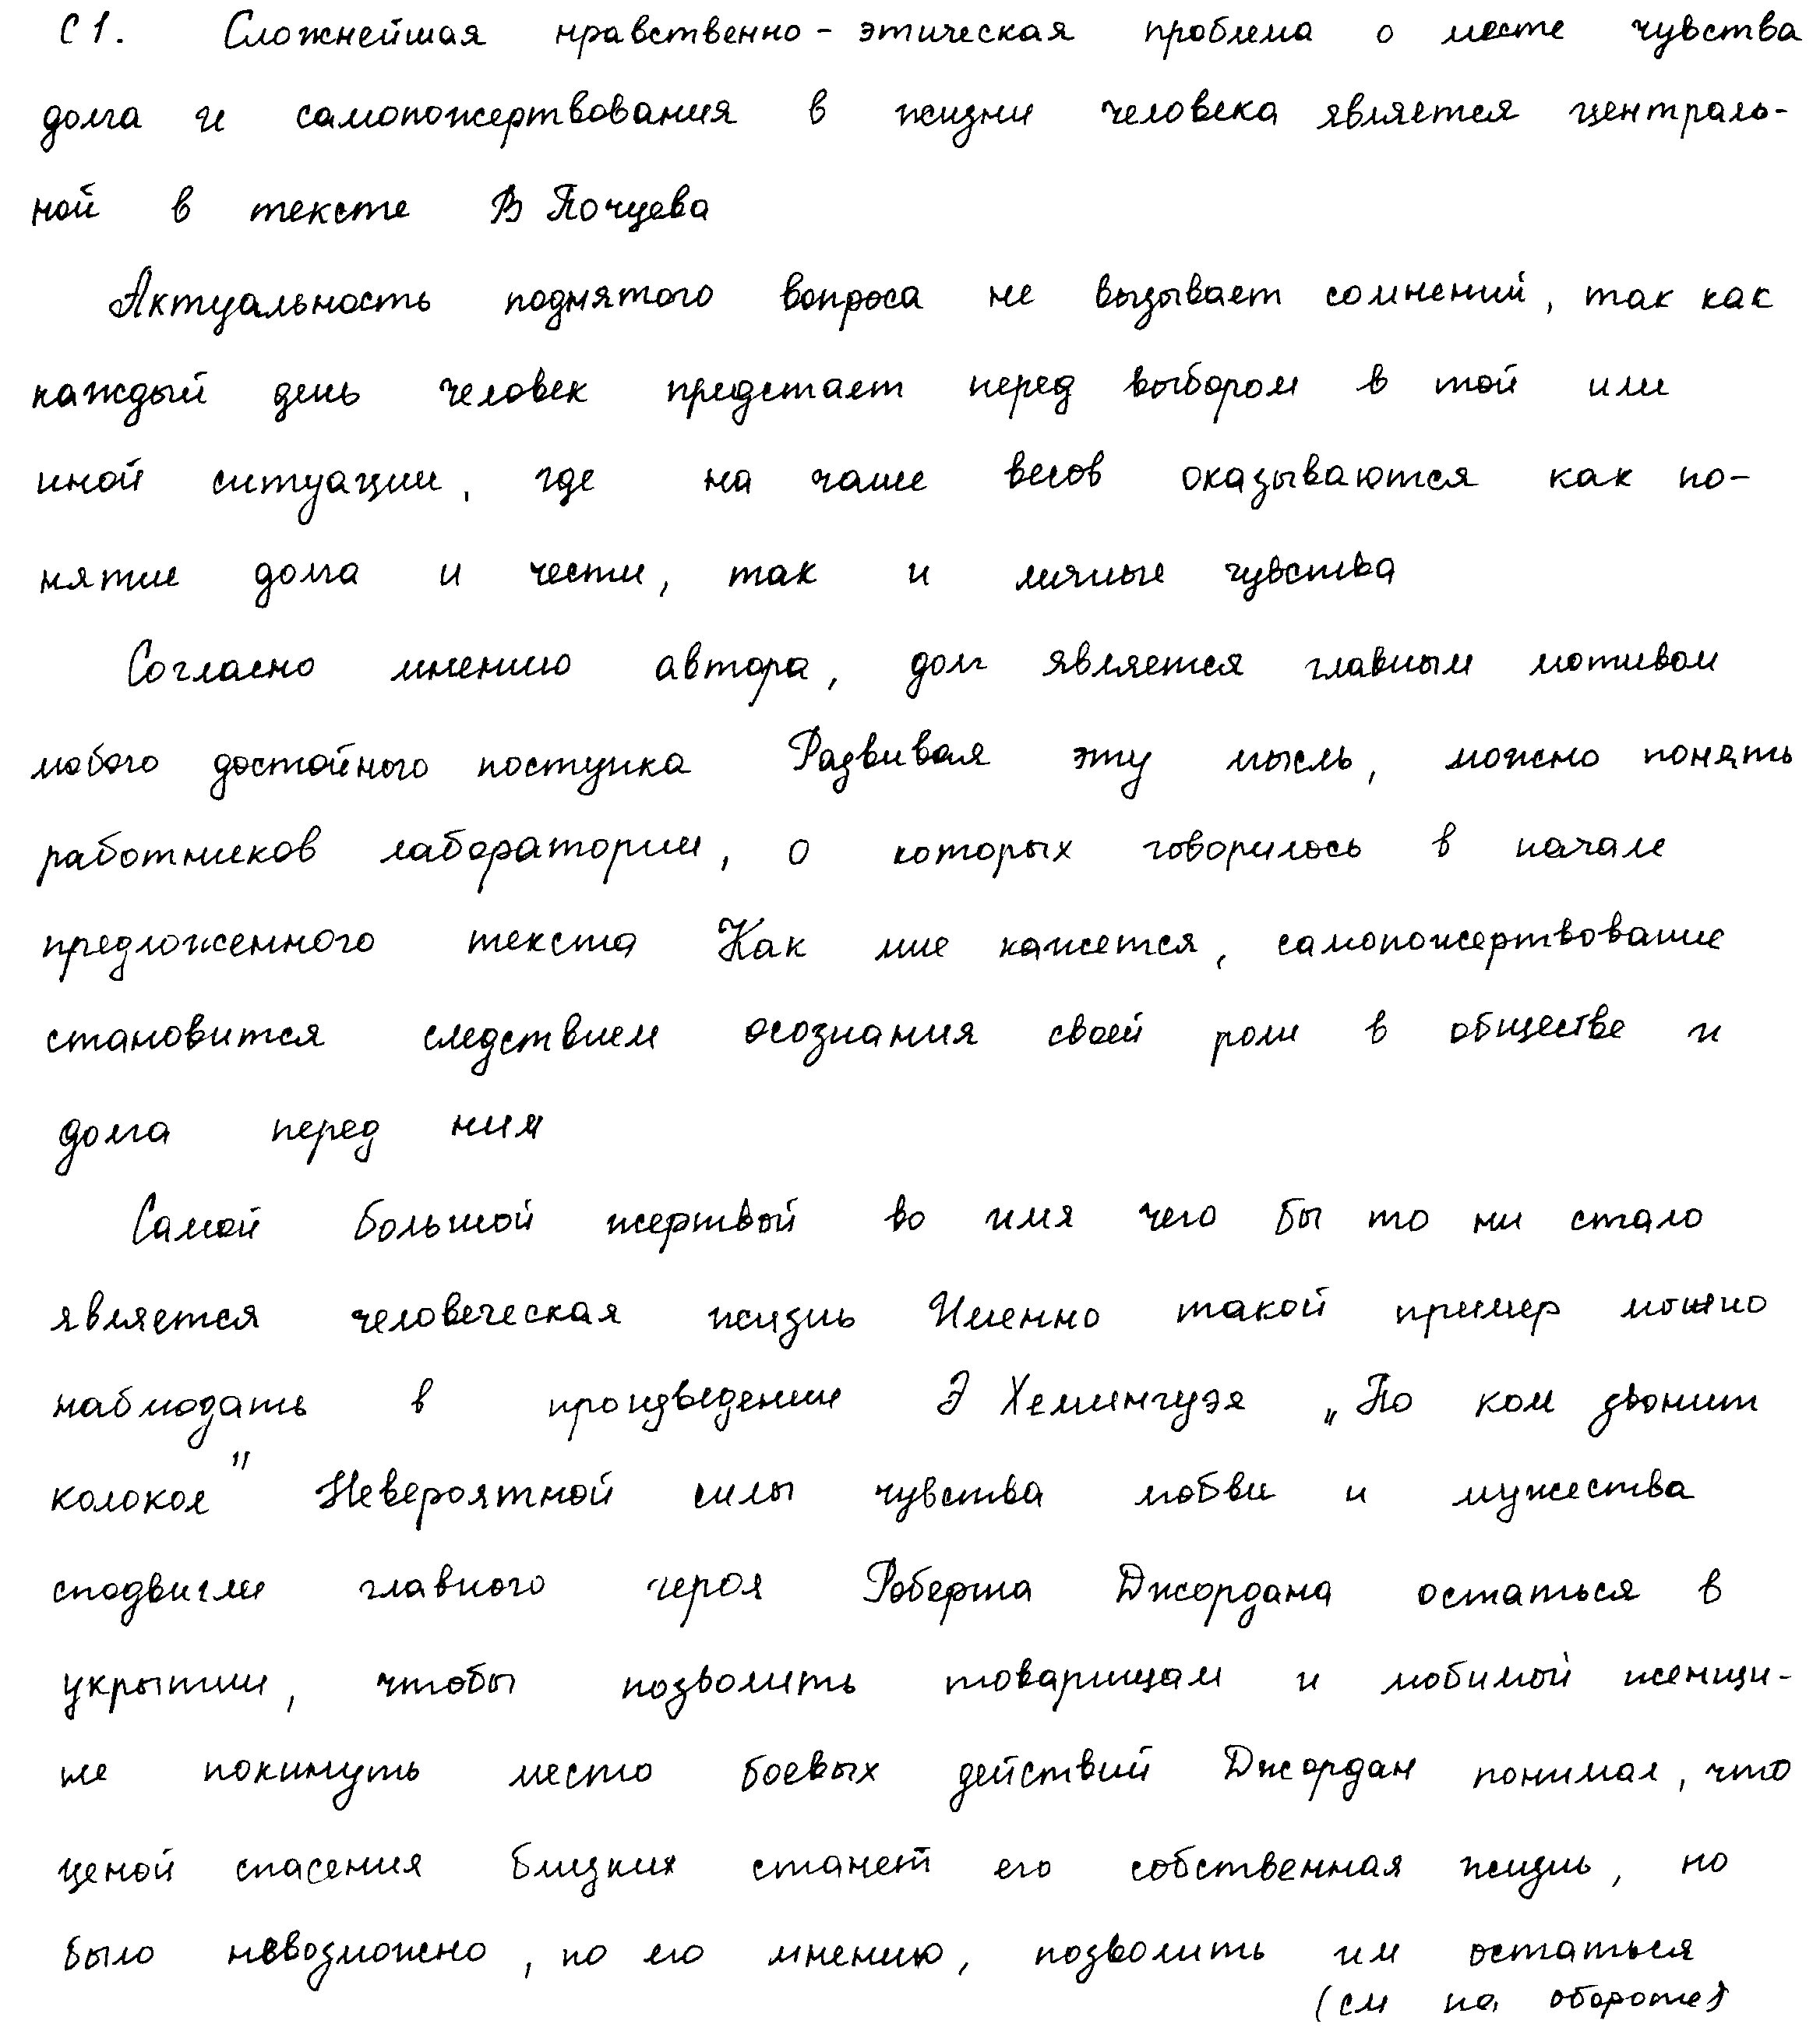 С1. Сложнейшая нравственно-этическая проблема о месте чувства
долга и самопожертвования в жизни человека является централь-
ной в тексте В Почуева
Актуальность поднятого вопроса не вызывает сомнений, так как
каждый день человек предстает перед выбором в той или
иной ситуации, где на чаше весов оказываются как по-
нятие долга и чести, так и личные чувства
Согласно мнению автора, долг является главным мотивом
любого достойного поступка Развивая эту мысль, можно понять
работников лаборатории, о которых говорилось в начале
предложенного текста Как мне кажется, самопожертвование
становится следствием осознания своей роли в обществе и
долга перед ним
Самой большой жертвой во имя чего бы то ни стало
является человеческая жизнь Именно такой пример можно
наблюдать в произведении Э Хемингуэя „По ком звонит
колокол" Невероятной силы чувства любви и мужества
сподвигли главного героя Роберта Джордана остаться в
укрытии, чтобы позволить товарищам и любимой женщи-
не покинуть место боевых действий Джордан понимал, что
ценой спасения близких станет его собственная жизнь, но
было невозможно, по его мнению, позволить им остаться
(см на обороте)